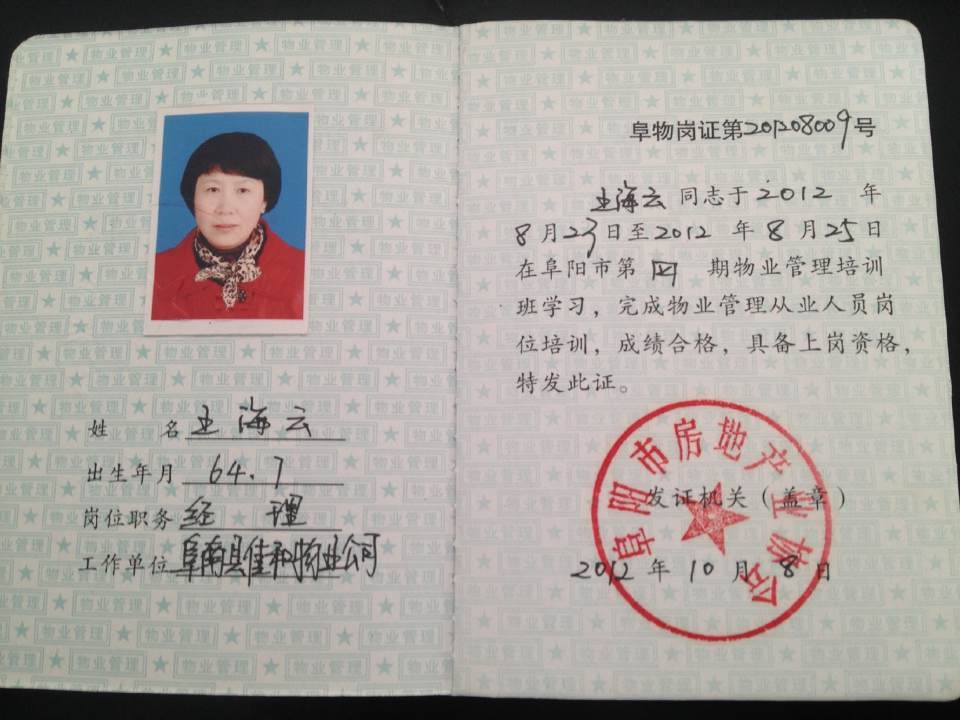 姓 名 王海云
出生年月 64.7
岗位职务 经 理
工作单位 阜南县佳和物业公司
阜物岗证第201208009号
王海云 同志于 2012 年
8 月 23 日至 2012 年 8 月 25 日
在阜阳市第 四 期物业管理培训
班学习，完成物业管理从业人员岗
位培训，成绩合格，具备上岗资格，
特发此证。
阜阳市房地产业协会
发证机关（盖章）
2012 年 10 月 8 日